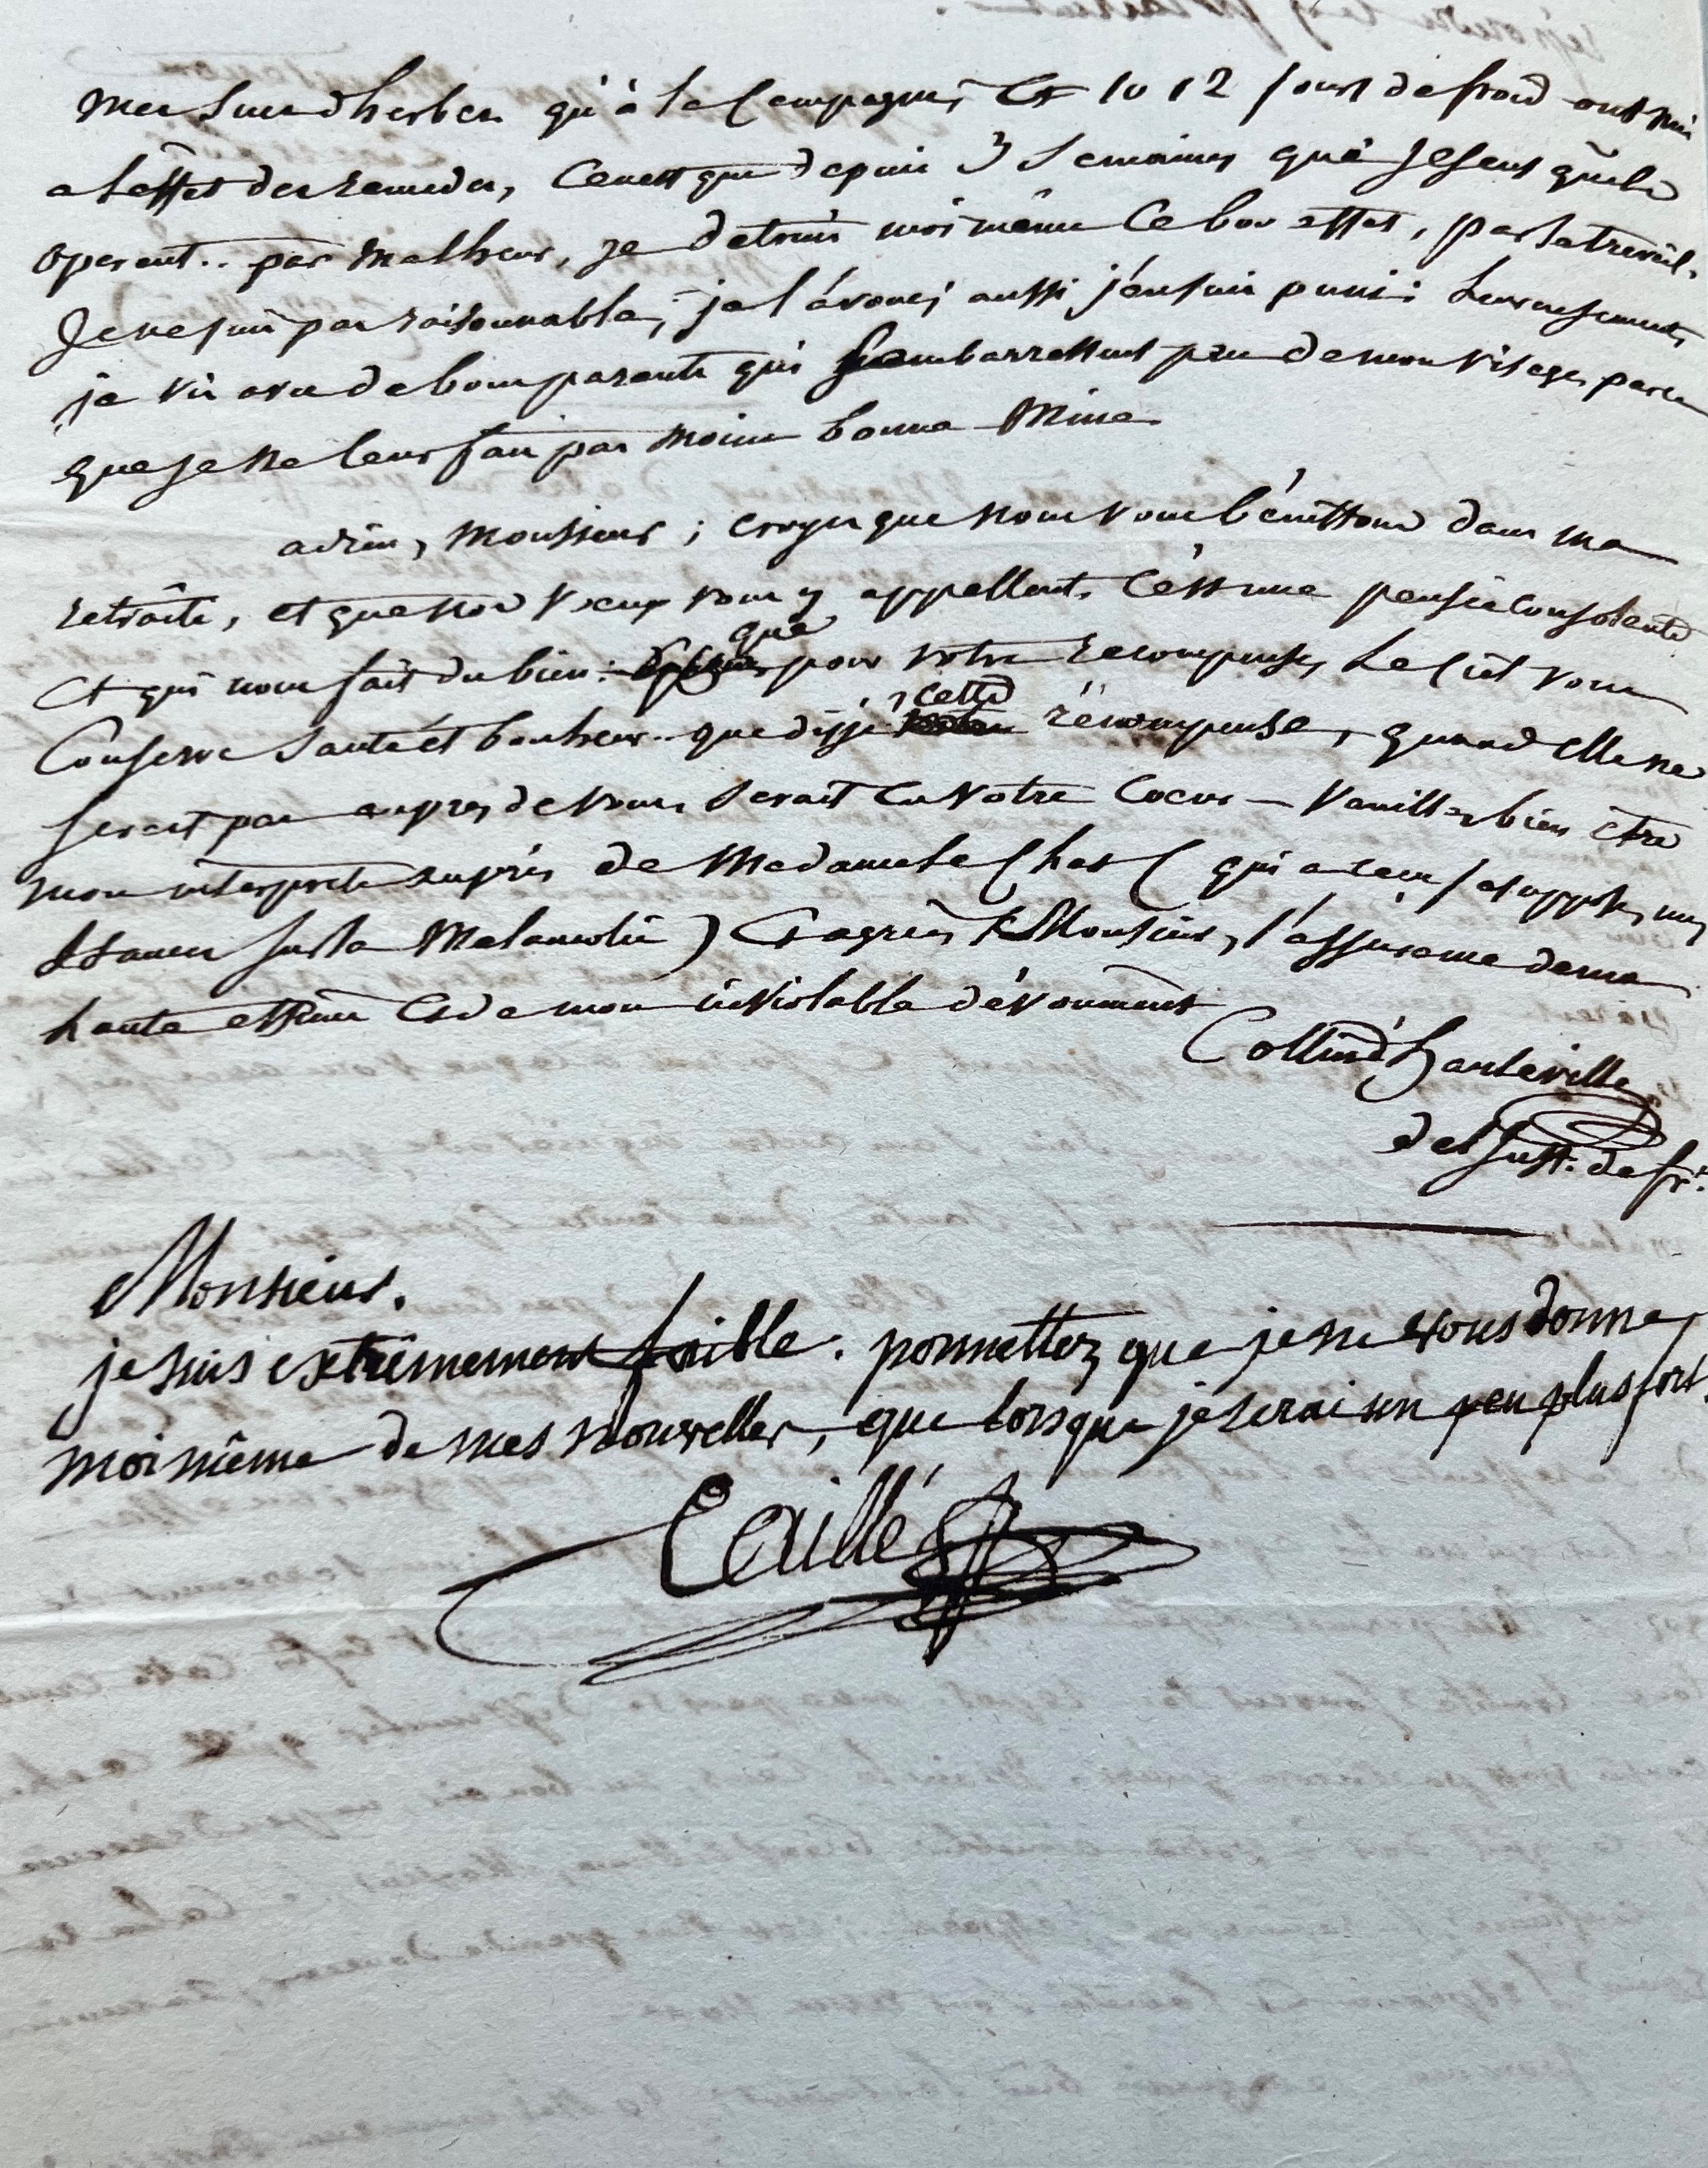 mes sucs d'herbes qu'à la Campagne, Et 10 12 jours de froid ont nui
a l'éffet des remedes, Ce n'est que depuis 3 Semaines que Je sens qu'ils
operent.. par malheur, je detruis moi même Ce bon effet, par le travail.
Je ne suis pas raisonnable, je l'avoue, aussi j'en suis puni: heureusement,
je vis avec de bons parents qui s'embarrassent peu de mon visage, parce
que je ne leur fais pas moins bonne Mine.
adieu, Monsieur; croyez que nous vous bénissons dans ma
retraite, et que nos vœux vous y appellent. C'est une pensée consolante
Et qui nous fait du bien: que pour votre recompense, Le Ciel vous
Conserve Santé et bonheur.. que dis-je cette récompense, quand elle ne
serait pas auprès de vous, Serait En votre Cœur — Veuillez bien être
mon interprete auprès de Madame Le Chat ( qui a reçu, je suppose, mes
Stances sur la Melancolie ) Et agréez, Monsieur, l'assurance de ma
haute estime Et de mon inviolable dévoument
Collin d'harleville
de l'Inst. de fr.
Monsieur.
je suis extrêmement foible. permettez que je ne vous donne
moi même de mes nouvelles, que lorsque je serai un peu plus fort.
Caillé